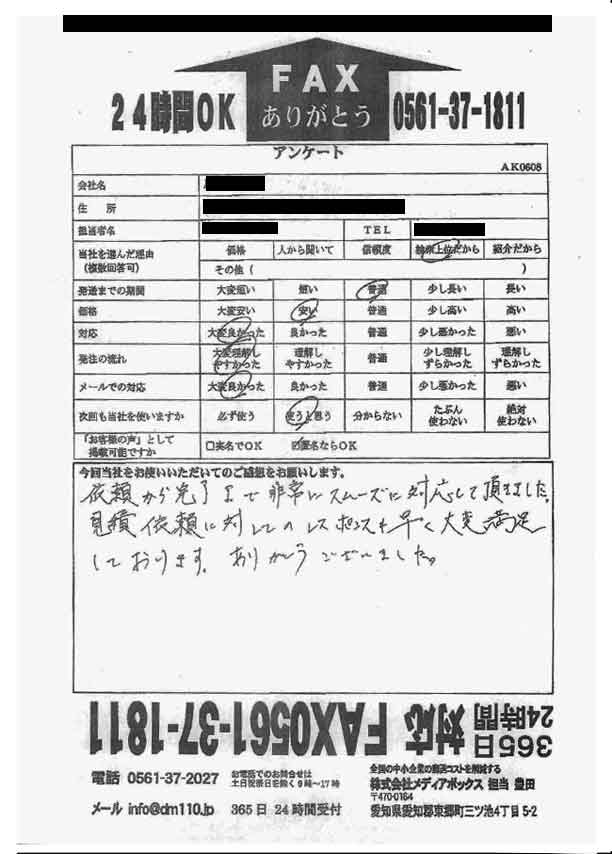 FAX
ありがとう
24時間OK
0561-37-1811
アンケート
AK0608
会社名
住 所
担当者名 TEL
当社を選んだ理由 (複数回答可) 価格 人から聞いて 信頼度 検索上位だから 紹介だから
その他 ( )
発送までの期間 大変短い 短い 普通 少し長い 長い
価格 大変安い 安い 普通 少し高い 高い
対応 大変良かった 良かった 普通 少し悪かった 悪い
発注の流れ 大変理解しやすかった 理解しやすかった 普通 少し理解しずらかった 理解しずらかった
メールでの対応 大変良かった 良かった 普通 少し悪かった 悪い
次回も当社を使いますか 必ず使う 使うと思う 分からない たぶん使わない 絶対使わない
「お客様の声」として掲載可能ですか □実名でOK ☑匿名ならOK
今回当社をお使いいただいてのご感想をお願いします。
依頼から完了まで非常にスムーズに対応して頂きました。
見積依頼に対してのレスポンスも早く大変満足
しております。ありがとうございました。
365日24時間対応 FAX0561-37-1811
電話 0561-37-2027 お電話でのお問合せは土日祝祭日を除く9時~17時
全国の中小企業の郵送コストを削減する
株式会社メディアボックス 担当 豊田
〒470-0164
メール info@dm110.jp 365日 24時間受付
愛知県愛知郡東郷町三ツ池4丁目5-2